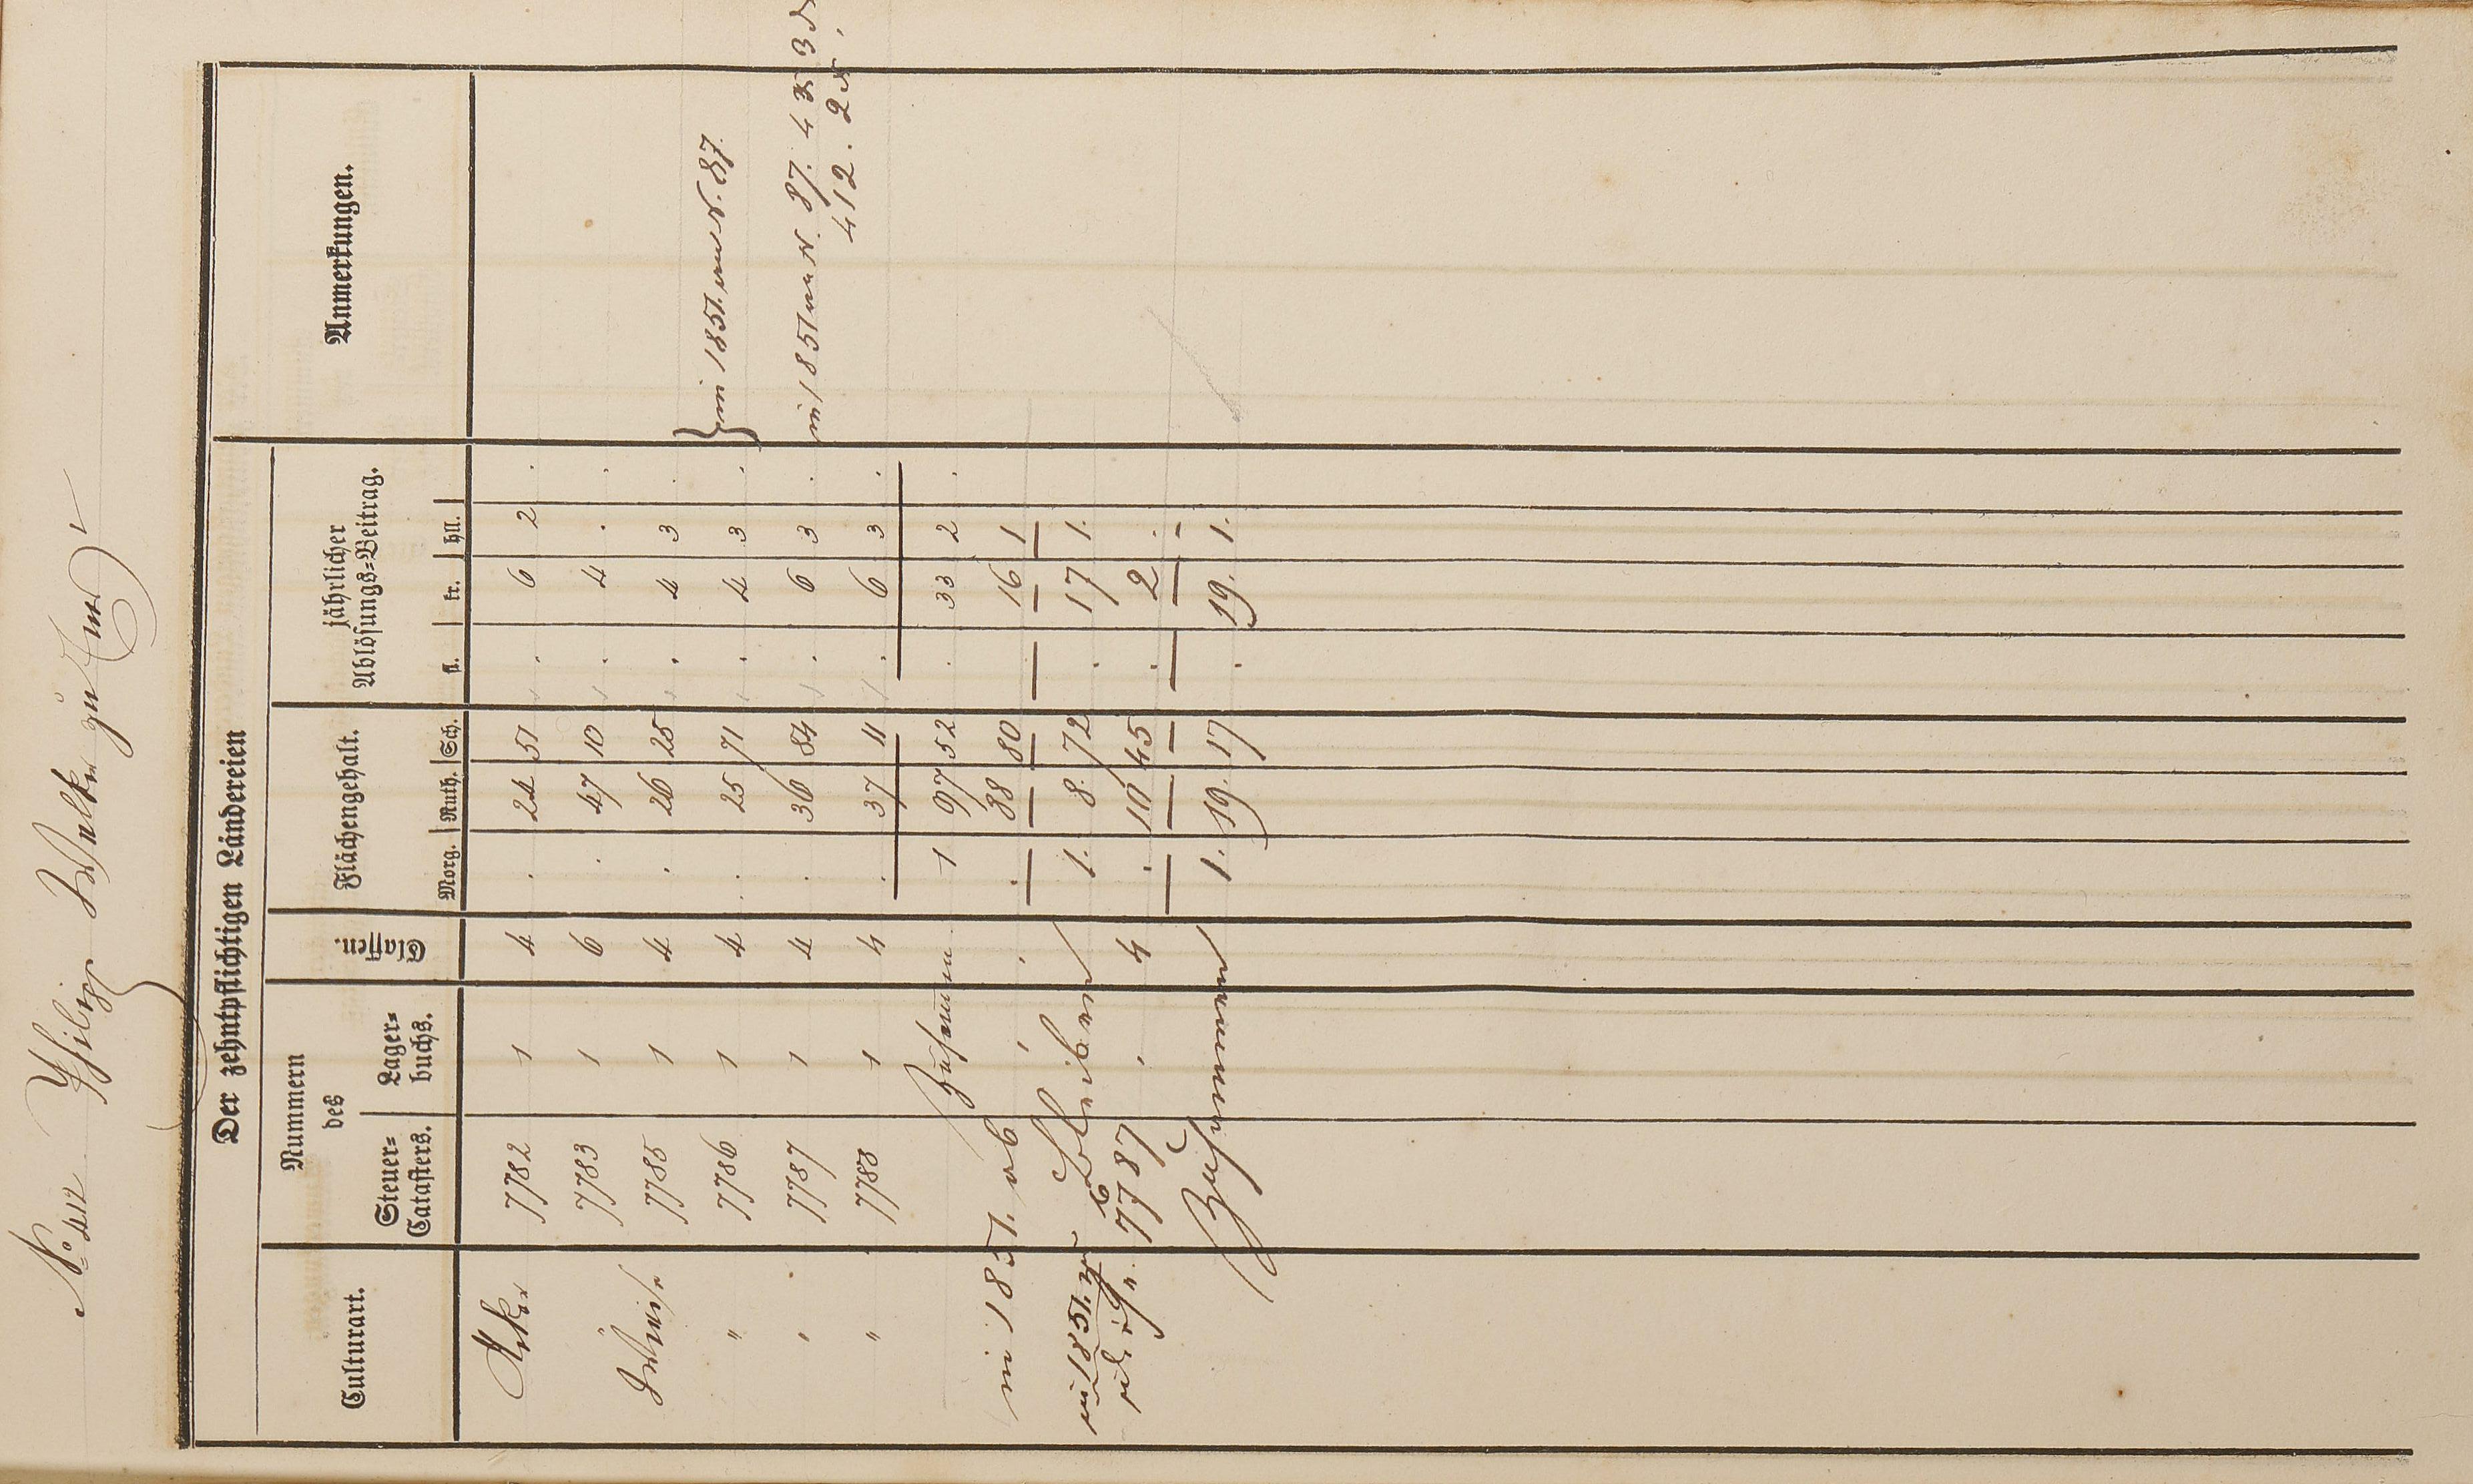 No. 412 Philipp Walker zu Ems
Der zehntpflichtigen Ländereien
Culturart. Nummern des Classen. Flächengehalt. jährlicher Ablösungs=Beitrag. Anmerkungen.
Steuer=Catasters. Lager=buchs. Morg. Ruth. Sch. fl. kr. hll.
Acker 7782 1 4 . 24 51 . 6 2 .
" 7783 1 6 . 47 10 . 4 . .
Wiese 7785 1 4 . 26 25 . 4 3 .
" 7786 1 4 . 25 71 . 4 3 . } in 1851. auf N. 87.
" 7787 1 4 . 36 84 . 6 3 . in 1851 auf N. 87. 4 3
" 7788 1 4 . 37 11 . 6 3 . 412. 2
Zusammen 1 97 52 . 33 2 .
in 1851. ab . 88 80 16 1
Bleiben 1. 8. 72 . 17 1.
in 1851. zu
7787 " 4 . 10 45 . 2 .
Zusammen 1. 19. 17 . 19. 1.